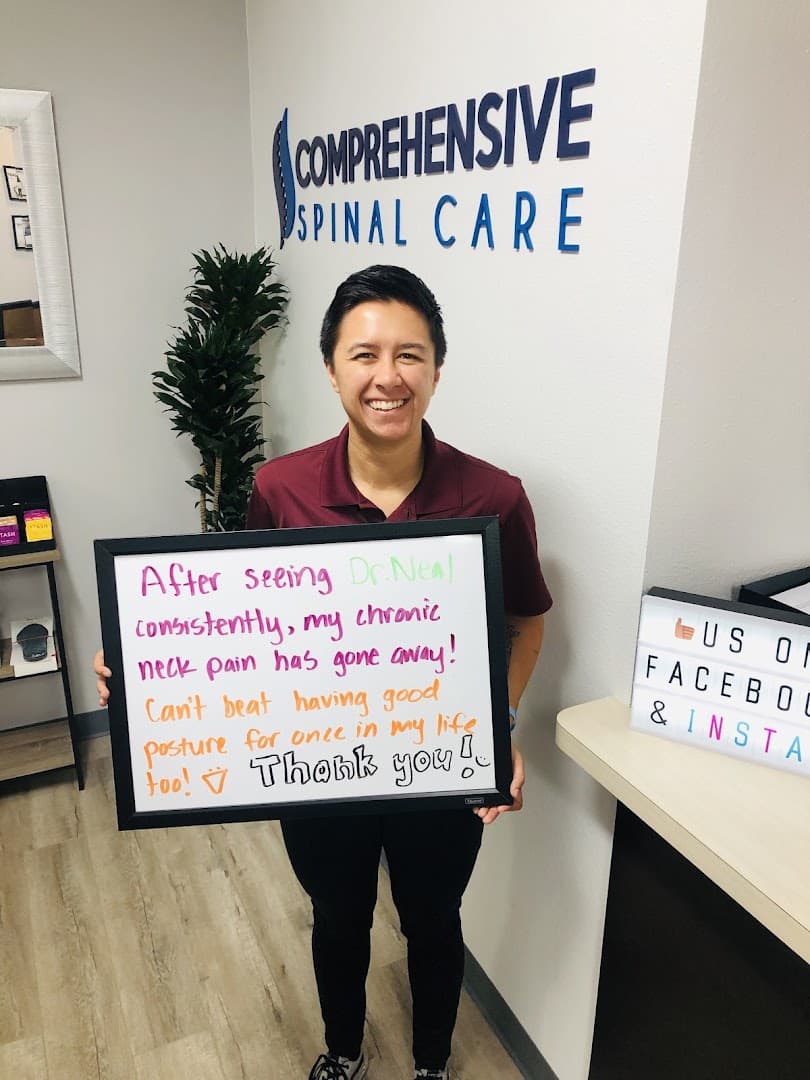 COMPREHENSIVE
SPINAL CARE
After seeing Dr. Neal
consistently, my chronic
neck pain has gone away!
Can't beat having good
posture for once in my life
too! Thank you!
US ON
FACEBOO
& INSTA
STASH